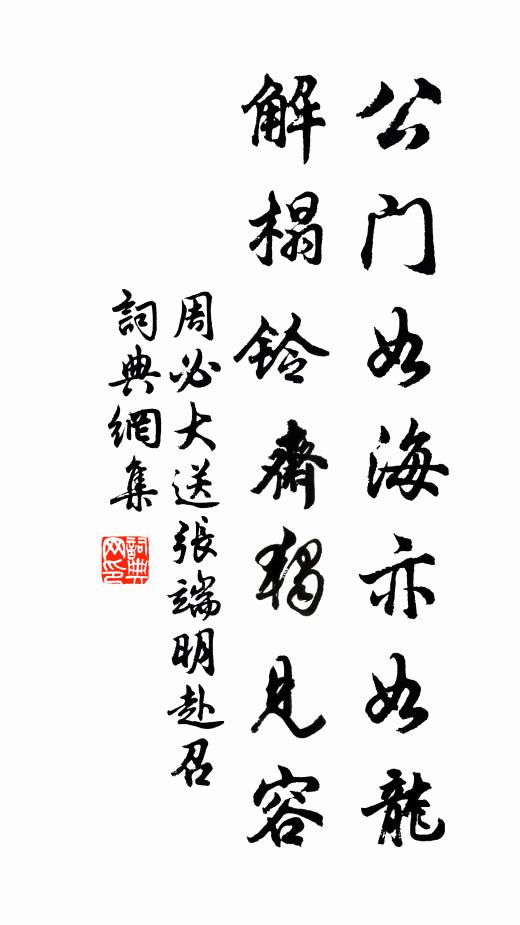 公门如海亦如龍
解榻鈴齋獨見容
周必大送張端明赴召
詞典網集
詞典网印